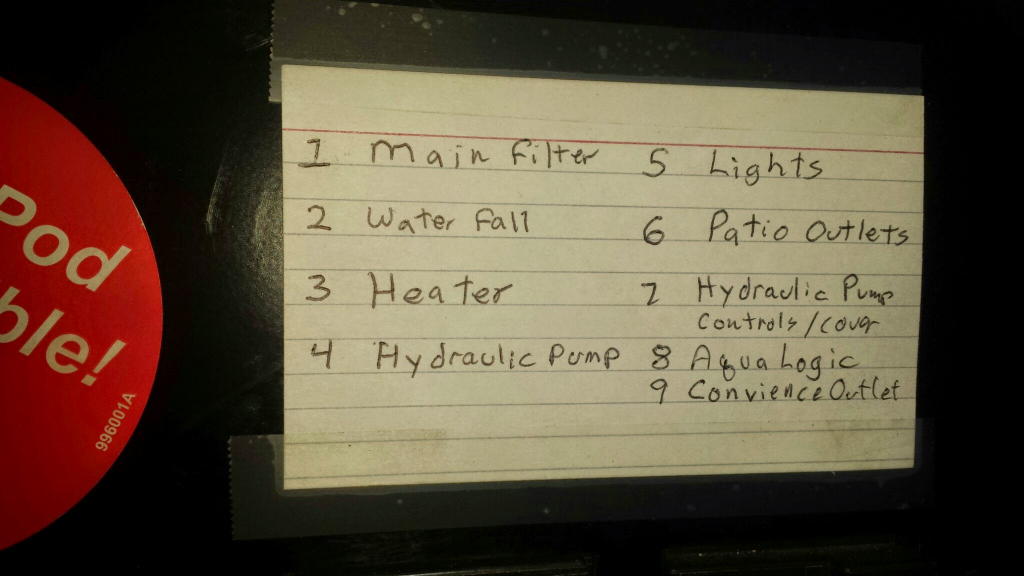 Pod
ble!
996001A
1 Main Filter
2 Water Fall
3 Heater
4 Hydraulic Pump
5 Lights
6 Patio Outlets
7 Hydraulic Pump
Controls/cover
8 Aqua Logic
9 Convience Outlet